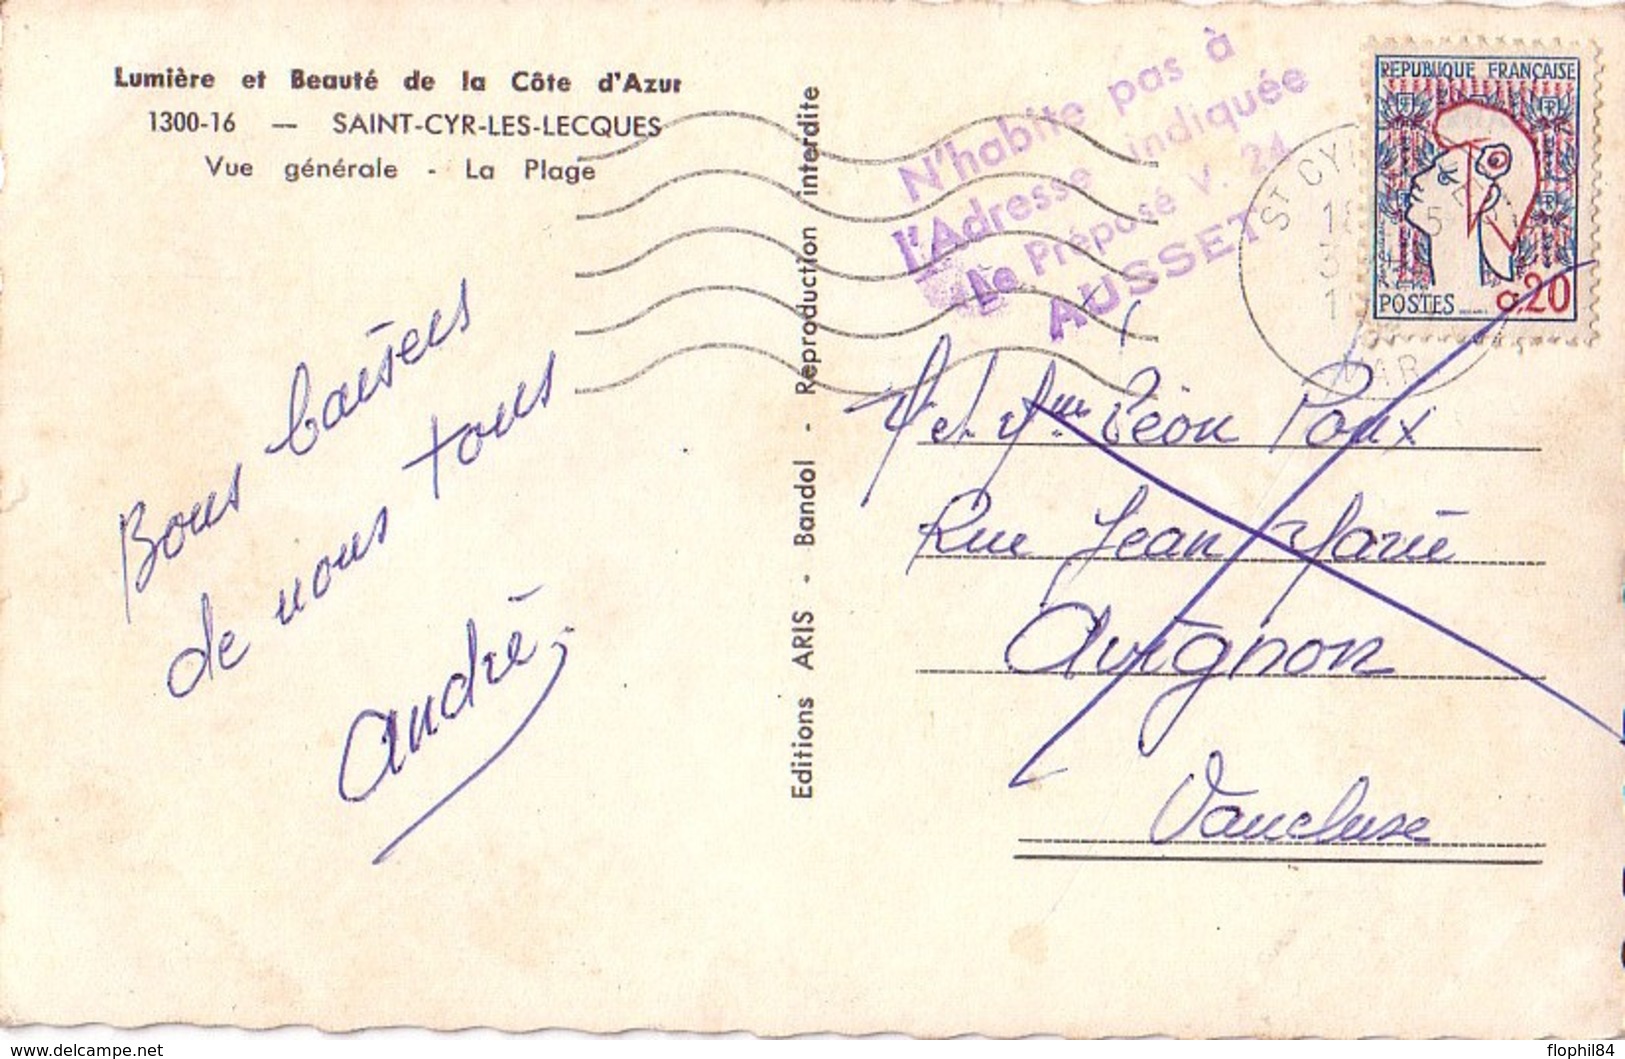 Lumière et Beauté de la Côte d'Azur
1300-16 — SAINT-CYR-LES-LECQUES
Vue générale - La Plage
Bons baisers
de nous tous
André
Editions ARIS - Bandol - Reproduction interdite
N'habite pas à
l'Adresse indiquée
Le Préposé V. 24
AUSSET
ST CYR
18
5
VAR
REPUBLIQUE FRANÇAISE
POSTES 0.20
M et Mme Léon Roux
Rue Jean Marie
Avignon
Vaucluse
www.delcampe.net
flophil84